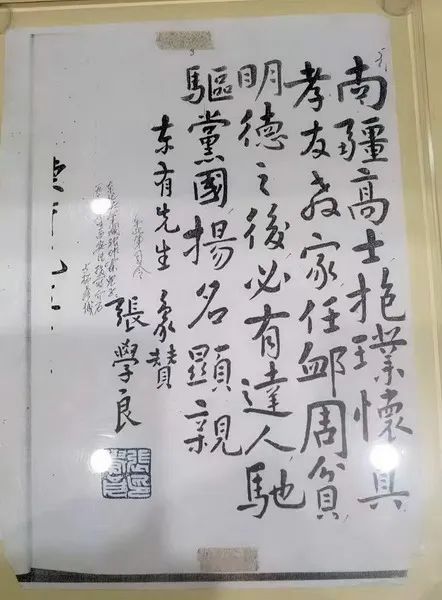 南疆高士抱璞懷真
孝友家任卹周貧
明德之後必有達人馳
驅黨國揚名顯親
东有先生 象贊
張學良